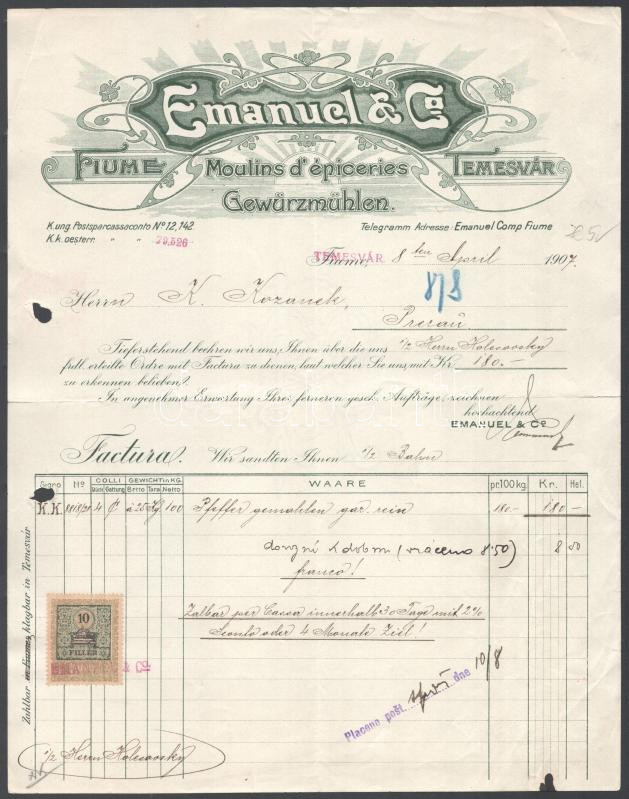 Emanuel & Co
FIUME Moulins d'épiceries TEMESVÁR
Gewürzmühlen.
K. ung. Postsparcassaconto No 12,142
K.k. oesterr. " " 29.526
Telegramm Adresse: Emanuel Comp Fiume
TEMESVÁR
Fiume, 8ten April 1907.
8/8
Herrn K. Kozanek,
Prerau
Tieferstehend beehren wir uns, Ihnen über die uns i/z Herrn Holesovsky
frdl. erteilte Ordre mit Factura zu dienen, laut welcher Sie uns mit Kr 180.-
zu erkennen belieben.
In angenehmer Erwartung Ihrer ferneren gesch. Aufträge, zeichnen
hochachtend
EMANUEL & Co
Factura. Wir sandten Ihnen Bahn
Signo No COLLI GEWICHT in KG. WAARE pr. 100 kg Kr. Hel.
Stück Gattung Brtto Tara Netto
K.K. 4 à 25 Kg 100 Pfeffer gemahlen gar. rein 180.- 180 -
(vráceno 8·50) 8 50
franco!
Zalbar per Cassa innerhalb 30 Tage mit 2%
Sconto oder 4 Monate Ziel!
10
FILLÉR
EMANUEL & Co
Placeno pošt. dne 10/8
Zahlbar in Fiume, klagbar in Temesvár
i/z Herrn Holesovsky